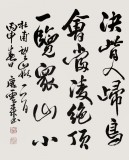 決眥入歸鳥
會當凌絕頂
一覽眾山小
杜甫望嶽一首
丙申春日